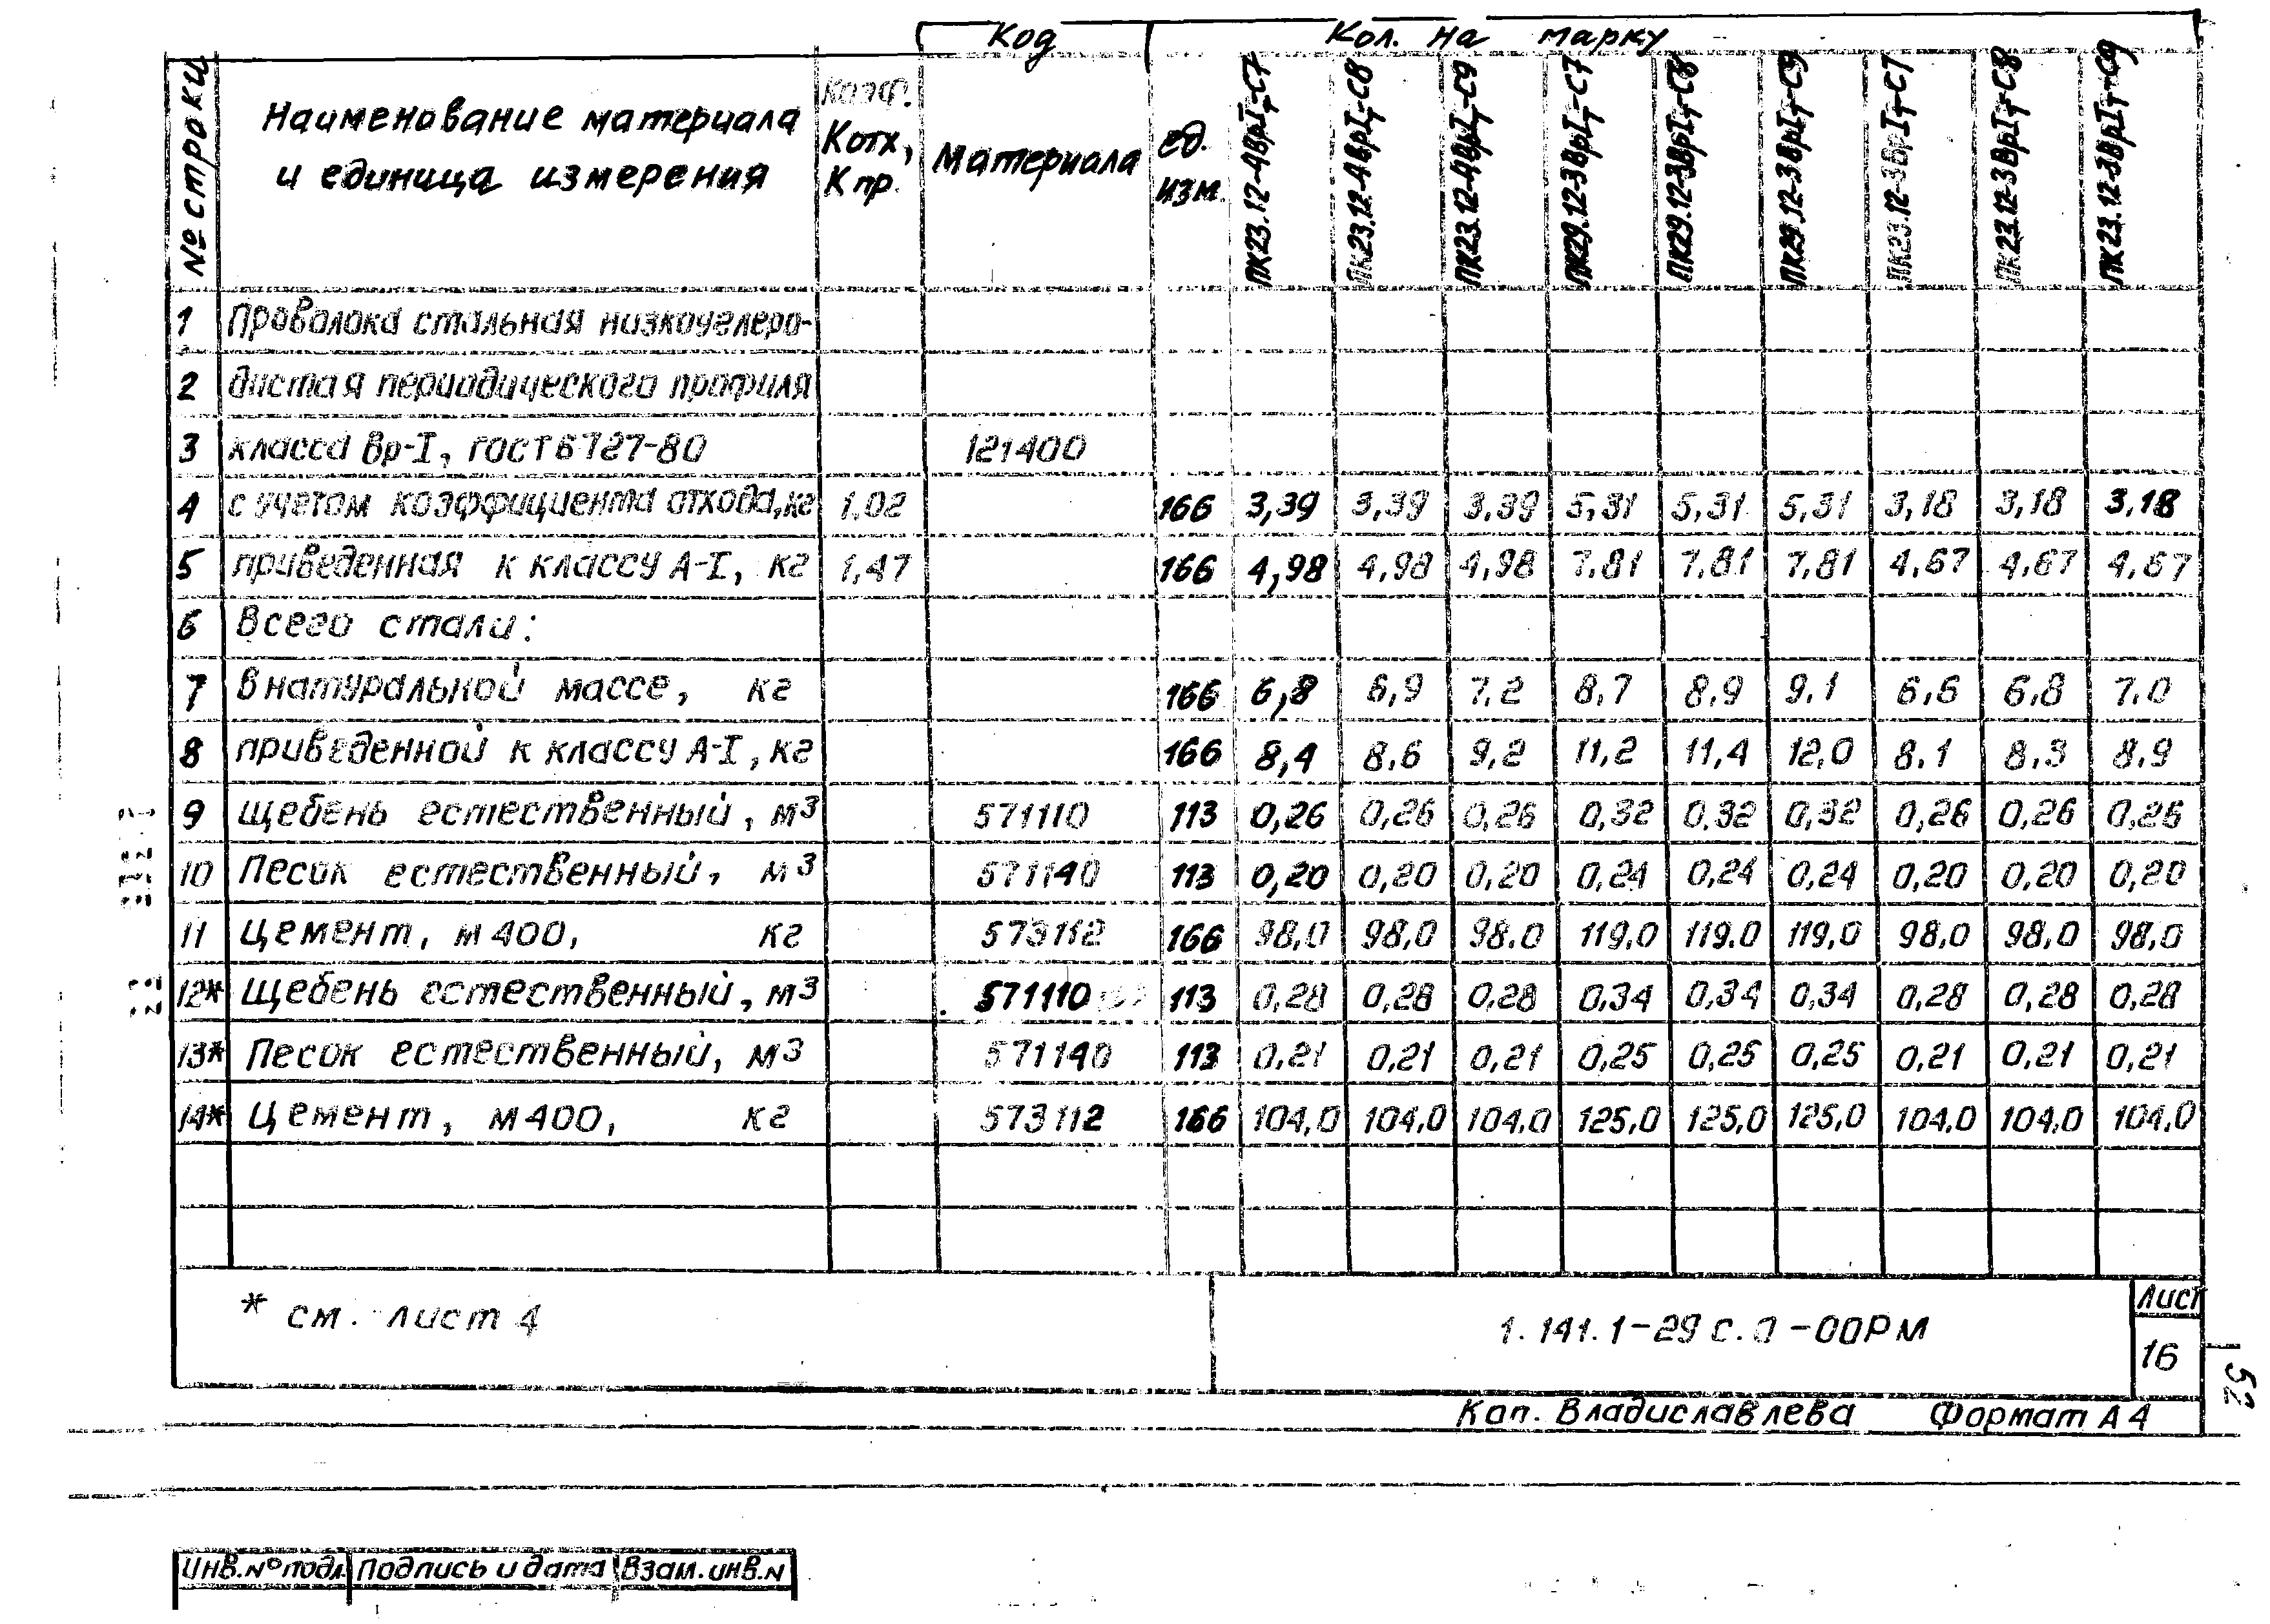 Код Кол. на марку
№ строки Наименование материала и единица измерения Коэф. Котх, Кпр. Материала ед. изм. ПК23.12-4ВрIт-С7 ПК23.12-4ВрIт-С8 ПК23.12-4ВрIт-С9 ПК29.12-3ВрIт-С7 ПК29.12-3ВрIт-С8 ПК29.12-3ВрIт-С9 ПК23.12-3ВрIт-С7 ПК23.12-3ВрIт-С8 ПК23.12-3ВрIт-С9
1 Проволока стальная низкоуглеро-
2 дистая периодического профиля
3 класса Вр-I, ГОСТ 6727-80 121400
4 с учетом коэффициента отхода, кг 1,02 166 3,39 3,39 3,39 5,31 5,31 5,31 3,18 3,18 3,18
5 приведенная к классу А-I, кг 1,47 166 4,98 4,98 4,98 7,81 7,81 7,81 4,67 4,67 4,67
6 Всего стали:
7 в натуральной массе, кг 166 6,8 6,9 7,2 8,7 8,9 9,1 6,6 6,8 7,0
8 приведенной к классу А-I, кг 166 8,4 8,6 9,2 11,2 11,4 12,0 8,1 8,3 8,9
9 Щебень естественный, м3 571110 113 0,26 0,26 0,26 0,32 0,32 0,32 0,26 0,26 0,26
10 Песок естественный, м3 571140 113 0,20 0,20 0,20 0,24 0,24 0,24 0,20 0,20 0,20
11 Цемент, м400, кг 573112 166 98,0 98,0 98,0 119,0 119,0 119,0 98,0 98,0 98,0
12* Щебень естественный, м3 571110 113 0,28 0,28 0,28 0,34 0,34 0,34 0,28 0,28 0,28
13* Песок естественный, м3 571140 113 0,21 0,21 0,21 0,25 0,25 0,25 0,21 0,21 0,21
14* Цемент, м400, кг 573112 166 104,0 104,0 104,0 125,0 125,0 125,0 104,0 104,0 104,0
* см. лист 4
1.141.1-29с.0-00РМ
Лист
16
52
Коп. Владиславлева Формат А4
Инв.№подл. Подпись и дата Взам.инв.N